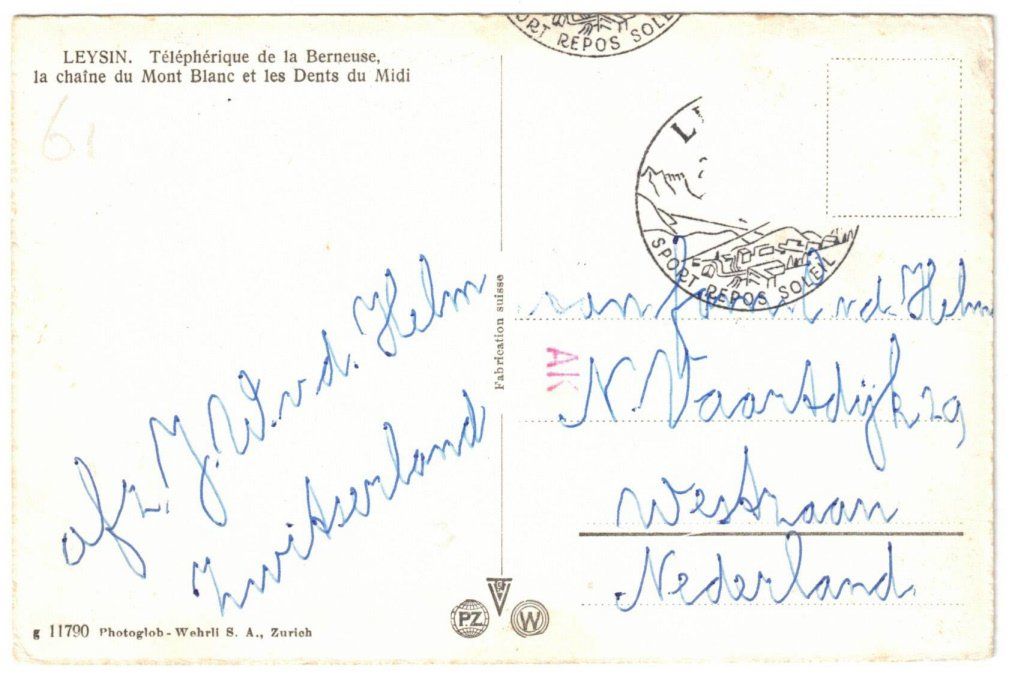 LEYSIN. Téléphérique de la Berneuse,
la chaîne du Mont Blanc et les Dents du Midi
61
SPORT REPOS SOLEIL
L
SPORT REPOS SOLEIL
afz. J.W.v.d. Helm
Zwitserland
Fabrication suisse
AK
aan fam v.d. Helm
N. Vaartdijk 29
Westzaan
Nederland.
PZ
W
g 11790 Photoglob-Wehrli S. A., Zurich